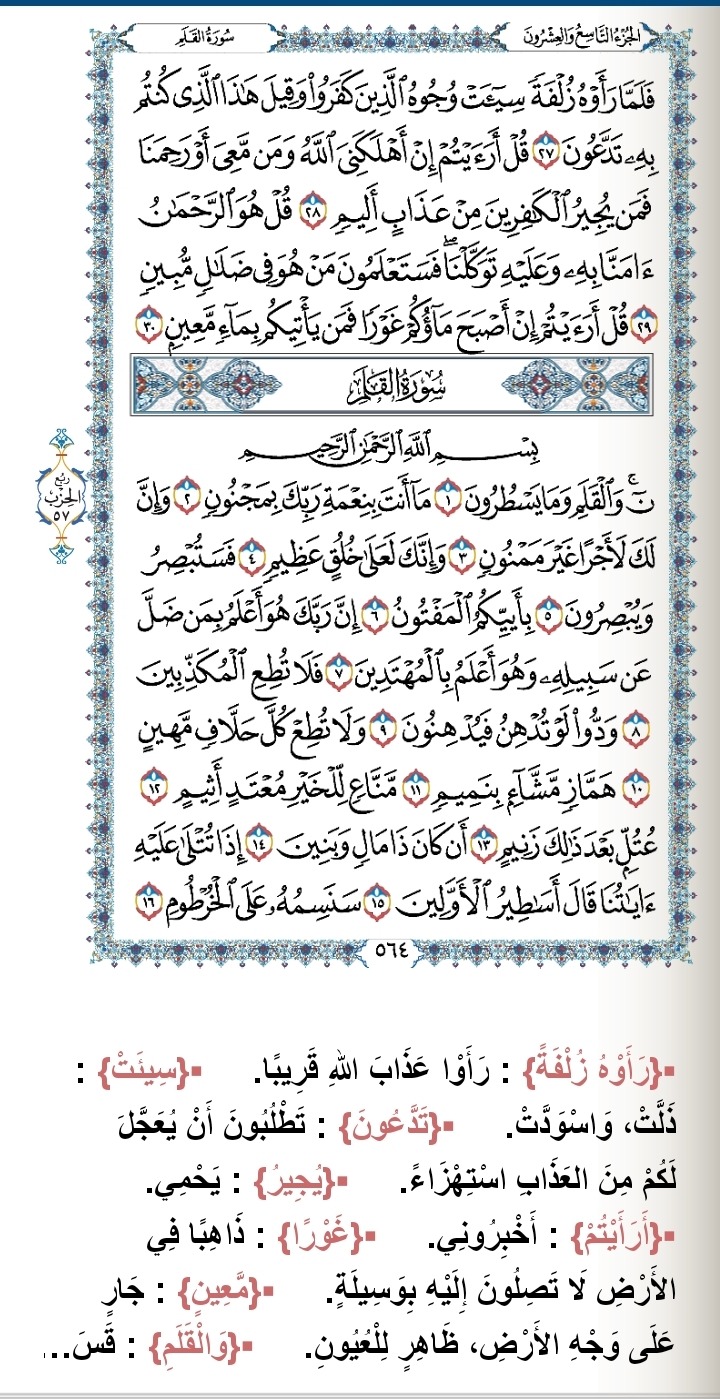 الجُزْءُ التَّاسِعُ وَالعِشْرُونَ
سُورَةُ القَلَمِ
فَلَمَّا رَأَوْهُ زُلْفَةً سِيٓـَٔتْ وُجُوهُ ٱلَّذِينَ كَفَرُوا۟ وَقِيلَ هَٰذَا ٱلَّذِى كُنتُم
بِهِۦ تَدَّعُونَ ٢٧ قُلْ أَرَءَيْتُمْ إِنْ أَهْلَكَنِىَ ٱللَّهُ وَمَن مَّعِىَ أَوْ رَحِمَنَا
فَمَن يُجِيرُ ٱلْكَٰفِرِينَ مِنْ عَذَابٍ أَلِيمٍ ٢٨ قُلْ هُوَ ٱلرَّحْمَٰنُ
ءَامَنَّا بِهِۦ وَعَلَيْهِ تَوَكَّلْنَا ۖ فَسَتَعْلَمُونَ مَنْ هُوَ فِى ضَلَٰلٍ مُّبِينٍ
٢٩ قُلْ أَرَءَيْتُمْ إِنْ أَصْبَحَ مَآؤُكُمْ غَوْرًا فَمَن يَأْتِيكُم بِمَآءٍ مَّعِينٍۭ ٣٠
سُورَةُ القَلَمِ
بِسْمِ ٱللَّهِ ٱلرَّحْمَٰنِ ٱلرَّحِيمِ
نٓ ۚ وَٱلْقَلَمِ وَمَا يَسْطُرُونَ ١ مَآ أَنتَ بِنِعْمَةِ رَبِّكَ بِمَجْنُونٍ ٢ وَإِنَّ
رُبع
الحِزْب
٥٧
لَكَ لَأَجْرًا غَيْرَ مَمْنُونٍ ٣ وَإِنَّكَ لَعَلَىٰ خُلُقٍ عَظِيمٍ ٤ فَسَتُبْصِرُ
وَيُبْصِرُونَ ٥ بِأَييِّكُمُ ٱلْمَفْتُونُ ٦ إِنَّ رَبَّكَ هُوَ أَعْلَمُ بِمَن ضَلَّ
عَن سَبِيلِهِۦ وَهُوَ أَعْلَمُ بِٱلْمُهْتَدِينَ ٧ فَلَا تُطِعِ ٱلْمُكَذِّبِينَ
٨ وَدُّوا۟ لَوْ تُدْهِنُ فَيُدْهِنُونَ ٩ وَلَا تُطِعْ كُلَّ حَلَّافٍ مَّهِينٍ
١٠ هَمَّازٍ مَّشَّآءٍۭ بِنَمِيمٍ ١١ مَّنَّاعٍ لِّلْخَيْرِ مُعْتَدٍ أَثِيمٍ ١٢
عُتُلٍّۭ بَعْدَ ذَٰلِكَ زَنِيمٍ ١٣ أَن كَانَ ذَا مَالٍ وَبَنِينَ ١٤ إِذَا تُتْلَىٰ عَلَيْهِ
ءَايَٰتُنَا قَالَ أَسَٰطِيرُ ٱلْأَوَّلِينَ ١٥ سَنَسِمُهُۥ عَلَى ٱلْخُرْطُومِ ١٦
٥٦٤
▪{رَأَوْهُ زُلْفَةً} : رَأَوْا عَذَابَ اللهِ قَرِيبًا. ▪{سِيئَتْ} :
ذَلَّتْ، وَاسْوَدَّتْ. ▪{تَدَّعُونَ} : تَطْلُبُونَ أَنْ يُعَجَّلَ
لَكُمْ مِنَ العَذَابِ اسْتِهْزَاءً. ▪{يُجِيرُ} : يَحْمِي.
▪{أَرَأَيْتُمْ} : أَخْبِرُونِي. ▪{غَوْرًا} : ذَاهِبًا فِي
الأَرْضِ لَا تَصِلُونَ إِلَيْهِ بِوَسِيلَةٍ. ▪{مَّعِينٍ} : جَارٍ
عَلَى وَجْهِ الأَرْضِ، ظَاهِرٍ لِلْعُيُونِ. ▪{وَالْقَلَمِ} : قَسَ...